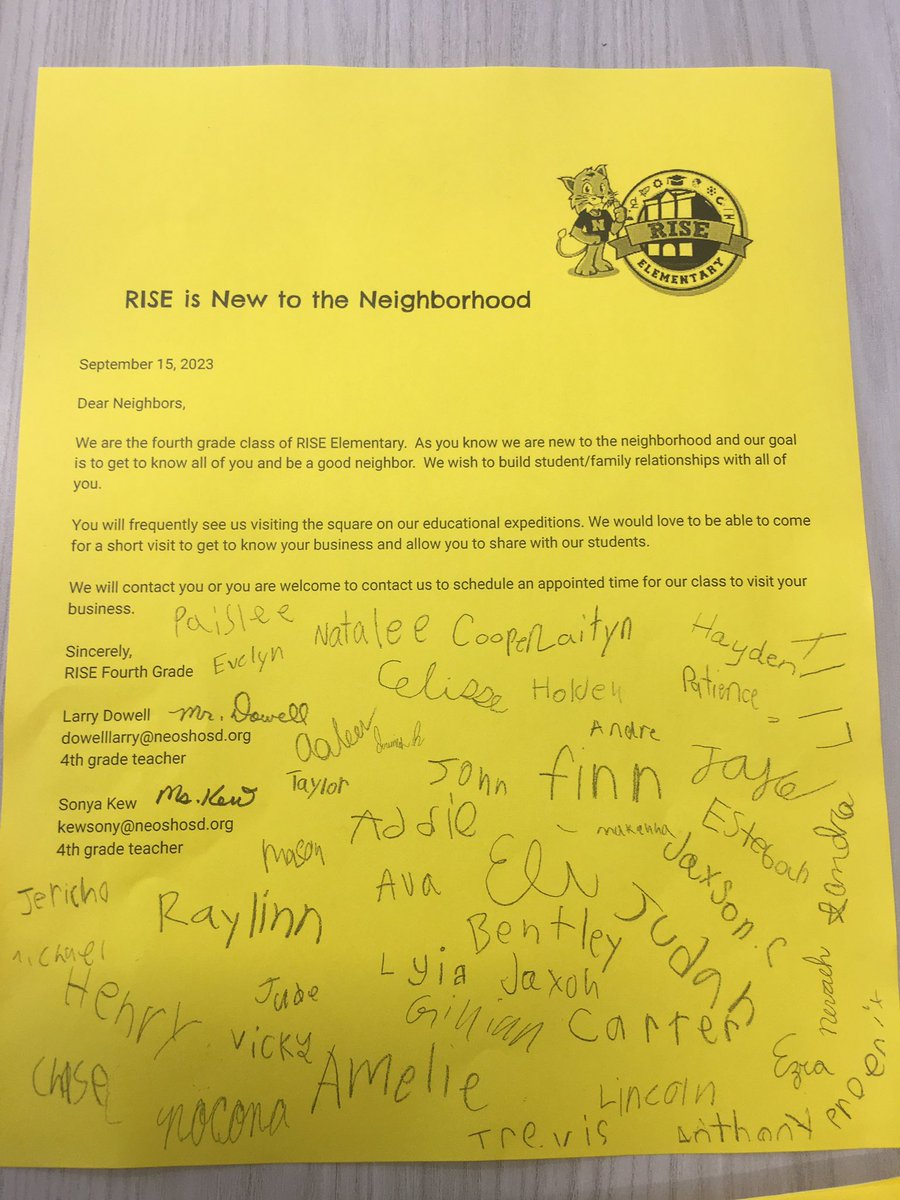 RISE
ELEMENTARY
N
RISE is New to the Neighborhood
September 15, 2023
Dear Neighbors,
We are the fourth grade class of RISE Elementary. As you know we are new to the neighborhood and our goal
is to get to know all of you and be a good neighbor. We wish to build student/family relationships with all of
you.
You will frequently see us visiting the square on our educational expeditions. We would love to be able to come
for a short visit to get to know your business and allow you to share with our students.
We will contact you or you are welcome to contact us to schedule an appointed time for our class to visit your
business.
Paislee
Natalee
Cooper
Kaityn
Hayden
Sincerely,
RISE Fourth Grade
Evelyn
Celisse
Holden
Patience
Larry Dowell Mr. Dowell
dowelllarry@neoshosd.org
4th grade teacher
Andre
Taylor
John
finn
Jase
Sonya Kew Ms. Kew
kewsony@neoshosd.org
4th grade teacher
Addie
makenna
Esteban
Mason
Ava
Eli
Jaxson.C
Jericho
Raylinn
Bentley
Judah
michael
Lyia
Jaxon
nevaeh
Henry
Jude
Gillian
Carter
Vicky
Ezra
Phoenix
Chase
nocona
Amelie
Lincoln
Trevis
Anthony